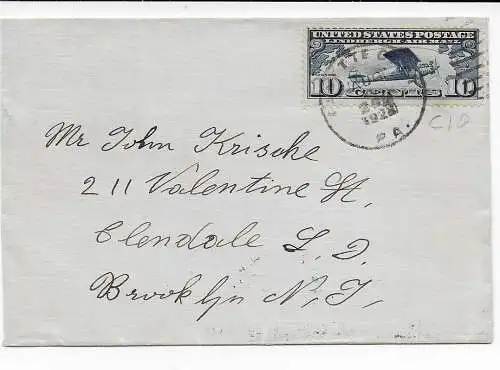 UNITED STATES POSTAGE
LINDBERGH-AIR MAIL
10 CENTS 10
192
PA.
C10
Mr John Krische
211 Valentine St,
Glendale L. I.
Brooklyn N, Y,